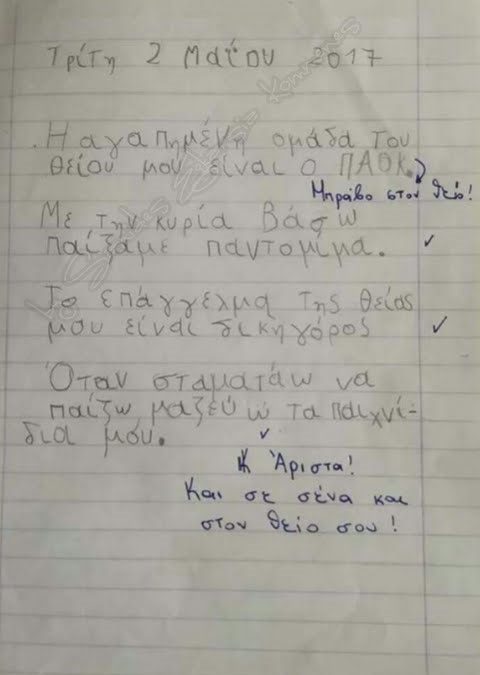 Τρίτη 2 Μαΐου 2017
Η αγαπημένη ομάδα του
θείου μου είναι ο ΠΑΟΚ.
Μπράβο στον θείο!
Με την κυρία Βάσω
παίξαμε παντομίμα.
Το επάγγελμα της θείας
μου είναι δικηγόρος
Όταν σταματάω να
παίζω μαζεύω τα παιχνί-
δια μου.
Άριστα!
Και σε σένα και
στον θείο σου!